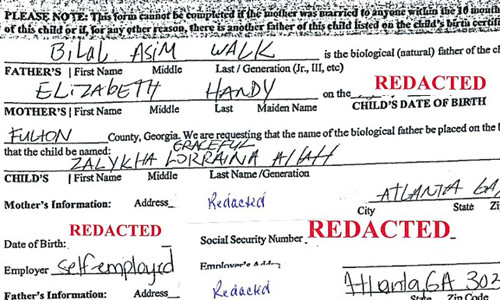 PLEASE NOTE: This form cannot be completed if the mother was married to anyone within the 10 month
of this child or if, for any other reason, there is another father of this child listed on the child's birth certif
Bilal Asim WALK is the biological (natural) father of the c
FATHER'S | First Name Middle Last / Generation (Jr., III, etc)
REDACTED
Elizabeth HANDY on the
MOTHER'S | First Name Middle Last Maiden Name CHILD'S DATE OF BIRTH
Fulton County, Georgia. We are requesting that the name of the biological father be placed on the
GRACEFUL
that the child be named:
ZALYKHA LORRAINA Allah
CHILD'S | First Name Middle Last Name /Generation
ATLANTA GA
Mother's Information: Address Redacted
City State Zi
REDACTED REDACTED
Date of Birth: Social Security Number
Employer self-employed Employer's Addr
Atlanta, GA 302
Father's Information: Address Redacted
State Zip Code